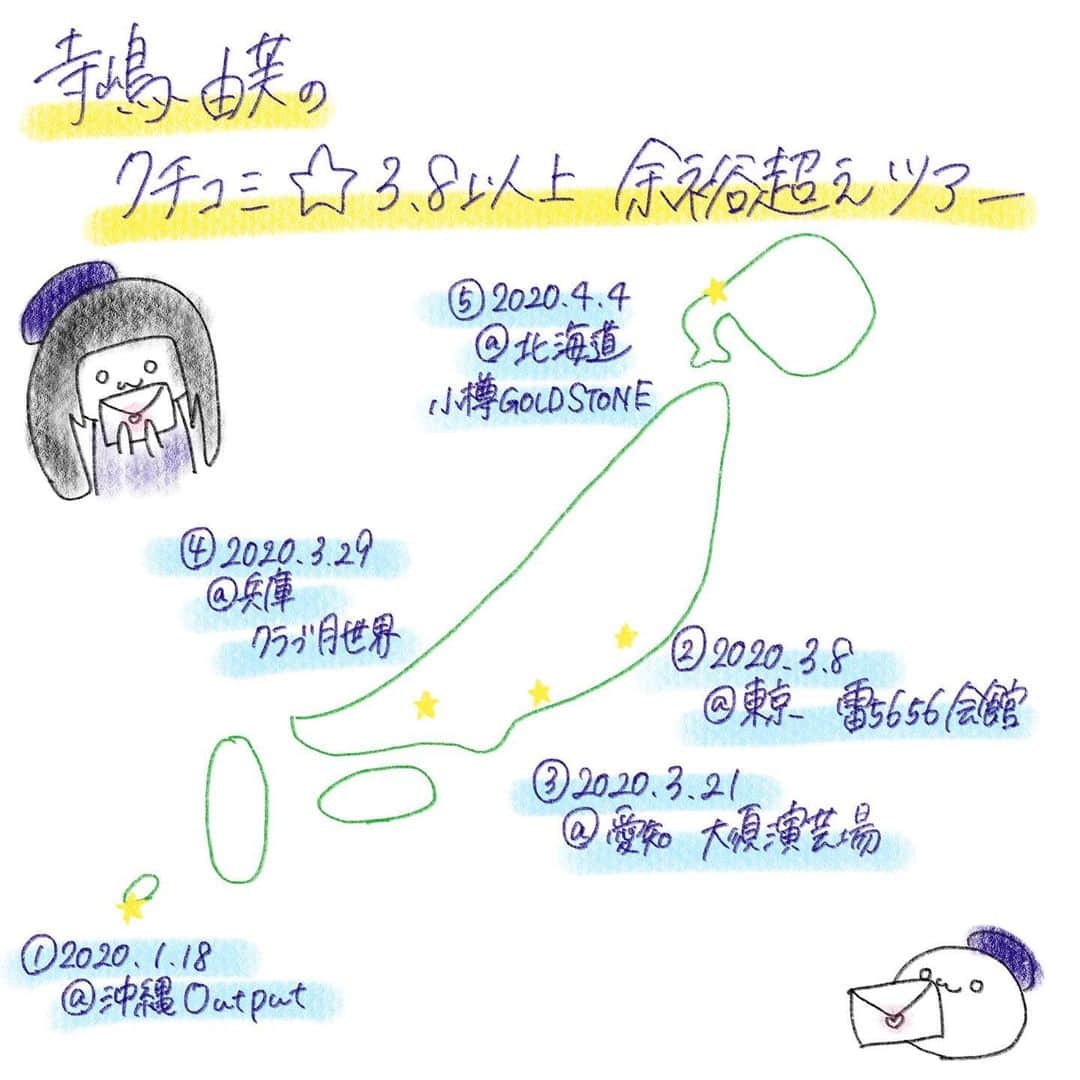 寺嶋由芙の
クチコミ☆3.8以上 余裕超えツアー
⑤2020.4.4
@北海道
小樽GOLDSTONE
④2020.3.29
@兵庫
クラブ月世界
②2020.3.8
@東京 雷5656会館
③2020.3.21
@愛知 大須演芸場
①2020.1.18
@沖縄Output